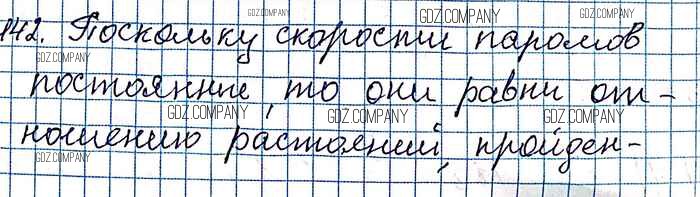 142. Поскольку скорости паромов
постоянные, то они равни от-
ношению растояний, пройден-
GDZ.COMPANY
GDZ.COMPANY
GDZ.COMPANY
GDZ.COMPANY
GDZ.COMPANY
GDZ.COMPANY
GDZ.COMPANY
GDZ.COMPANY
GDZ.COMPANY
GDZ.COMPANY